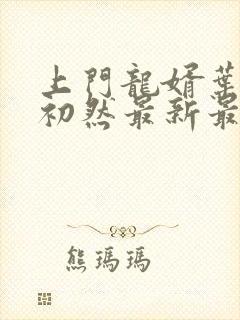 上門龍婿葉
初然最新最
熊瑪瑪